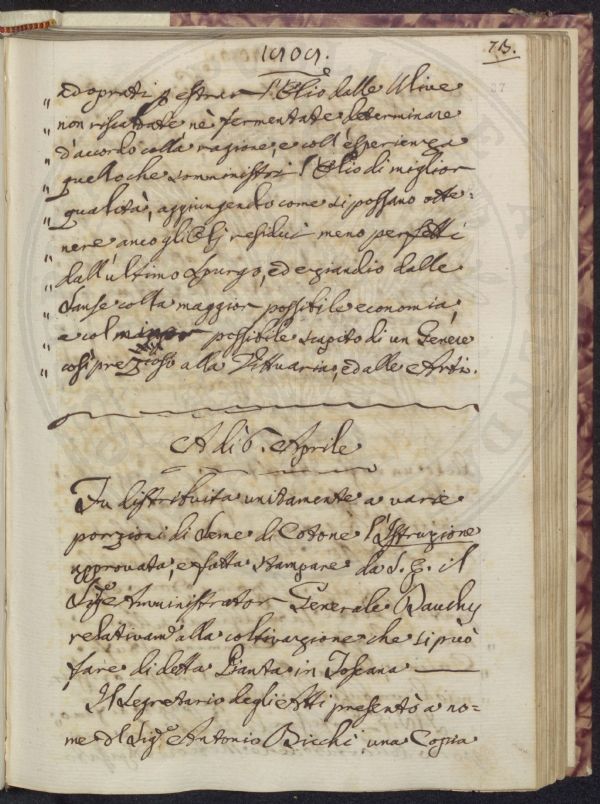 1808.
73.
37
„ adoprati p estrar l'Olio dalle Ulive
„ non riscaldate nè fermentate, determinare
„ d'accordo colla ragione, e coll'esperienza
„ quello che somministri l'Olio di miglior
„ qualità, aggiungendo come si possano otte=
„ nere anco gli Olj residui meno perfetti
„ dall'ultimo spurgo, ed eziandio dalle
„ Sanse colla maggior possibile economia,
„ e col minor possibile scapito di un Genere
„ così prezioso alla Vittuaria, ed alle Arti.
A dì 6. Aprile
Fu distribuita unitamente a varie
porzioni di Seme di Cotone l'Istruzione
approvata, e fatta stampare da S. E. il
Sige Amministrator Generale Dauchy
relativamte alla coltivazione che si può
fare di detta Pianta in Toscana
Il Segretario degli Atti presentò a no=
me dl Sige Antonio Bicchi una Copia